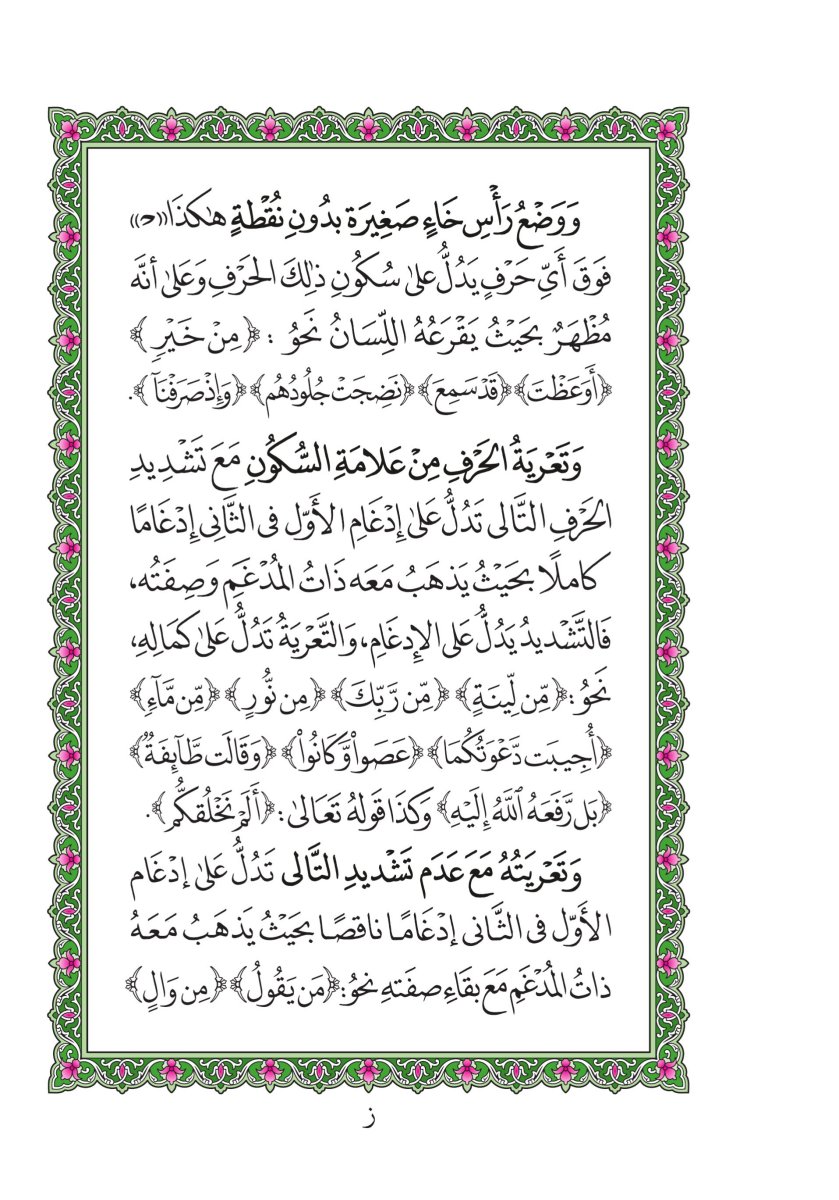 وَوَضْعُ رَأْسِ خَاءٍ صَغِيرَة بدُونِ نُقْطةٍ هٰكذَا ((ۡ))
فَوقَ أَيِّ حَرْفٍ يَدُلُّ علىٰ سُكُونِ ذٰلِكَ الحَرْفِ وَعَلىٰ أنَّه
مُظْهَرٌ بحَيْثُ يَقْرَعُهُ اللِّسَانُ نَحْوُ : ﴿مِنْ خَيْرٍ﴾
﴿أَوَعَظْتَ﴾ ﴿قَدْ سَمِعَ﴾ ﴿نَضِجَتْ جُلُودُهُم﴾ ﴿وَإِذْ صَرَفْنَآ﴾.
وَتَعْرِيَةُ الحَرْفِ مِنْ عَلامَةِ السُّكُونِ مَعَ تَشْدِيدِ
الحَرْفِ التَّالى تَدُلُّ عَلىٰ إِدْغَامِ الأَوَّل فى الثَّانِى إِدْغَامًا
كاملًا بحَيْثُ يَذهَبُ مَعَه ذَاتُ المُدْغَمِ وَصِفَتُه،
فَالتَّشْديدُ يَدُلُّ عَلى الإِدغَامِ، وَالتَّعْرِيَةُ تَدُلُّ عَلىٰ كَمَالِهِ،
نَحْوُ: ﴿مِّن لِّينَةٍ﴾ ﴿مِّن رَّبِّكَ﴾ ﴿مِن نُّورٍ﴾ ﴿مِّن مَّآءٍ﴾
﴿أُجِيبَت دَّعْوَتُكُمَا﴾ ﴿عَصَوا۟ وَّكَانُوا۟﴾ ﴿وَقَالَت طَّآئِفَةٌ﴾
﴿بَل رَّفَعَهُ ٱللَّهُ إِلَيْهِ﴾ وَكَذَا قَولهُ تَعَالَىٰ: ﴿أَلَمْ نَخْلُقكُّم﴾.
وَتَعْرِيَتُهُ مَعَ عَدَم تَشْديدِ التَّالى تَدُلُّ عَلىٰ إدْغَام
الأَوَّل فى الثَّانى إدْغَامًا ناقصًا بحَيْثُ يَذهَبُ مَعَهُ
ذاتُ المُدْغَمِ مَعَ بقَاءِ صفَتهِ نحْوُ: ﴿مَن يَقُولُ﴾ ﴿مِن وَالٍ﴾
ز